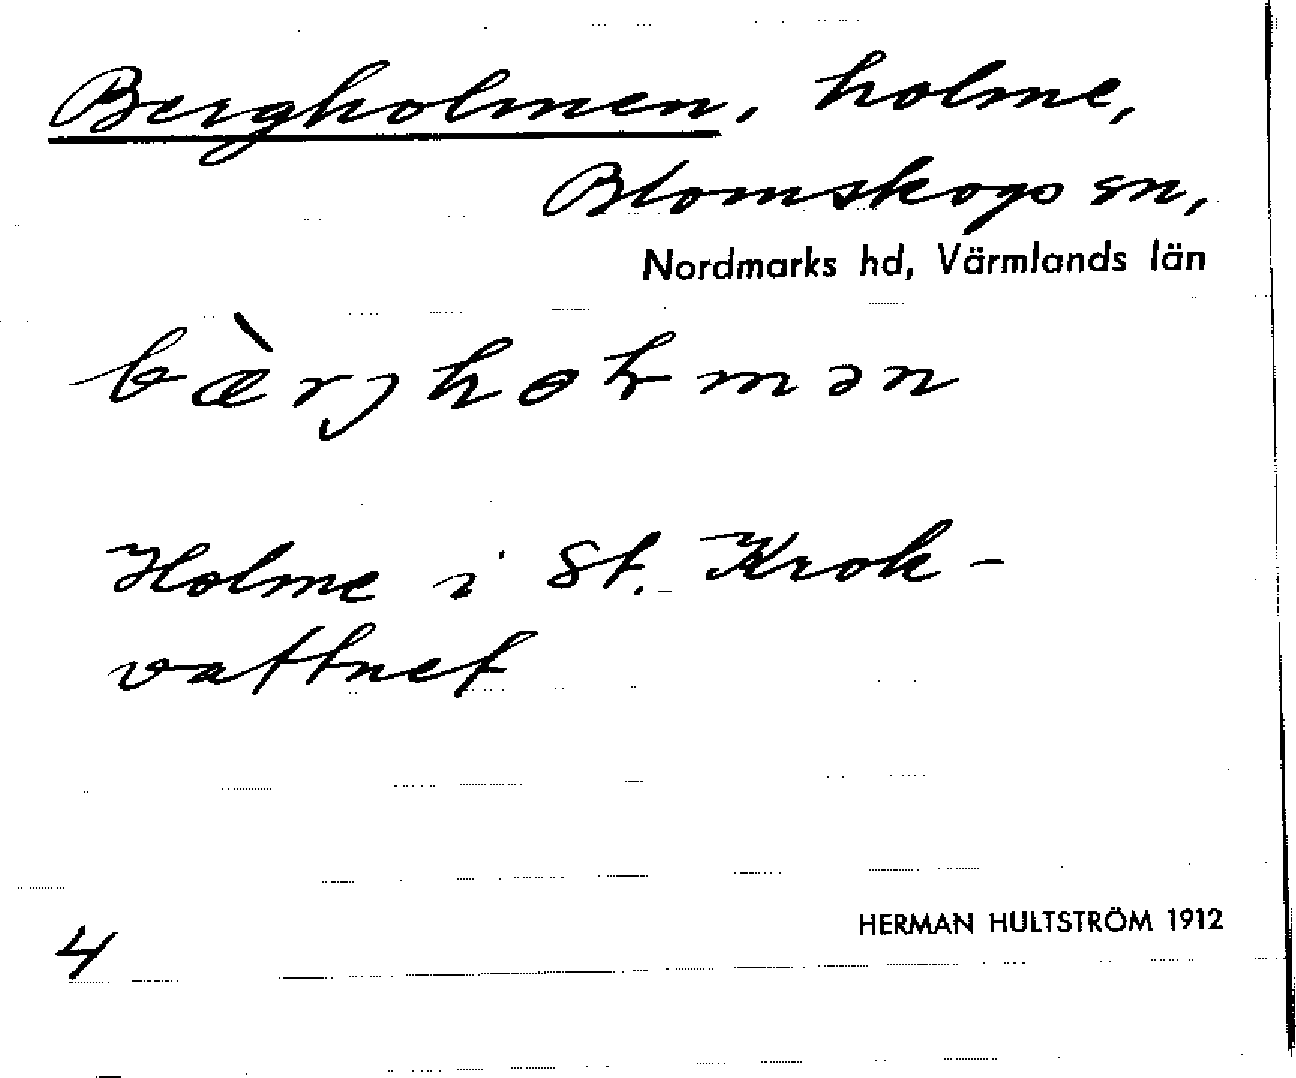 Bergholmen, holme,
Blomskogs sn,
Nordmarks hd, Värmlands län
bæ̀rjhoɫmən
Holme i St. Krok-
vattnet
HERMAN HULTSTRÖM 1912
4